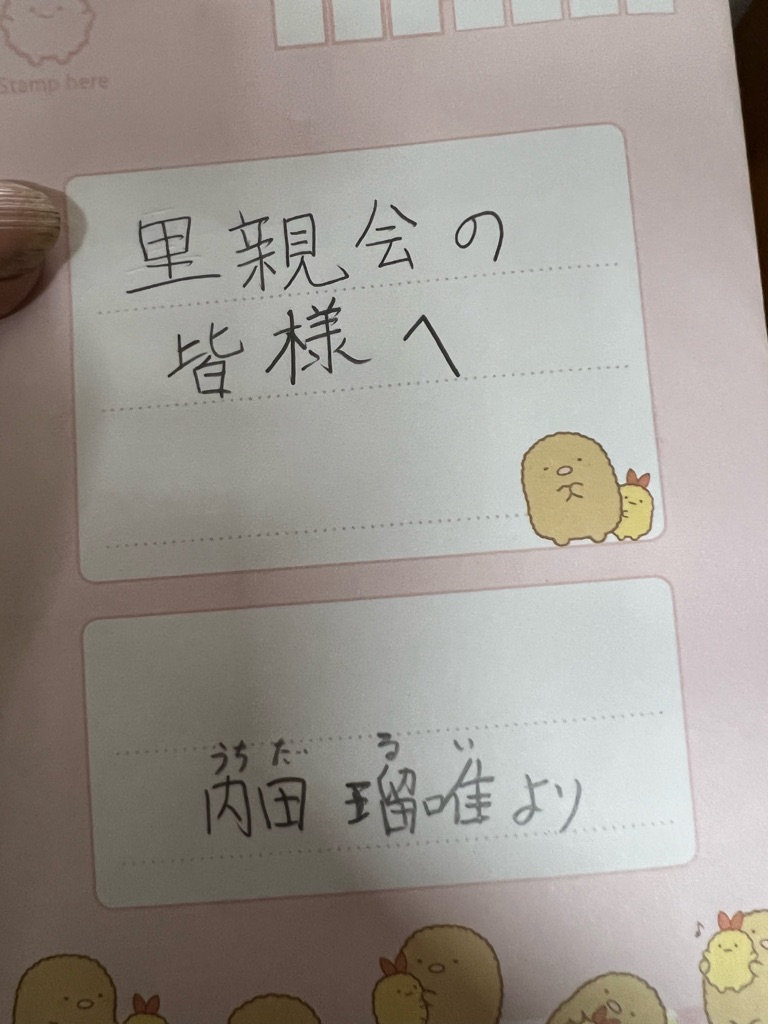 Stamp here
里親会の
皆様へ
うちだ るい
内田 瑠唯より